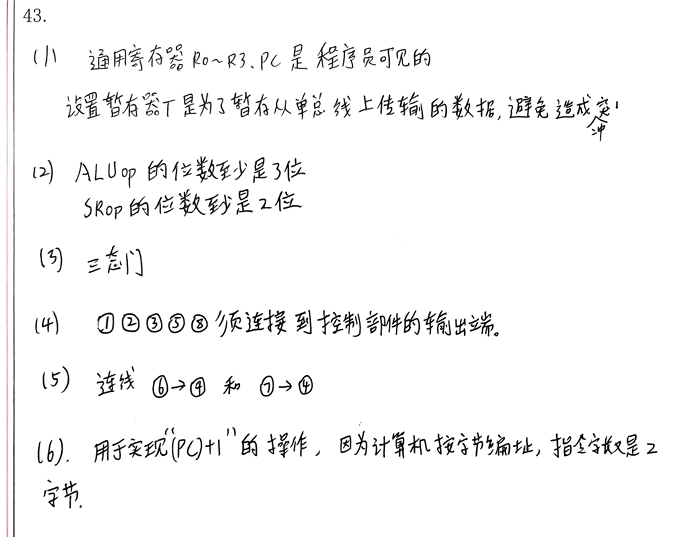 43.
(1) 通用寄存器R0~R3、PC是程序员可见的
设置暂存器T是为了暂存从单总线上传输的数据,避免造成突冲
(2) ALUop的位数至少是3位
SRop的位数至少是2位
(3) 三态门
(4) ①②③⑤⑧须连接到控制部件的输出端。
(5) 连线 ⑥→⑨ 和 ⑦→④
(6). 用于实现"(PC)+1"的操作, 因为计算机按字节编址, 指令字长是2
字节.